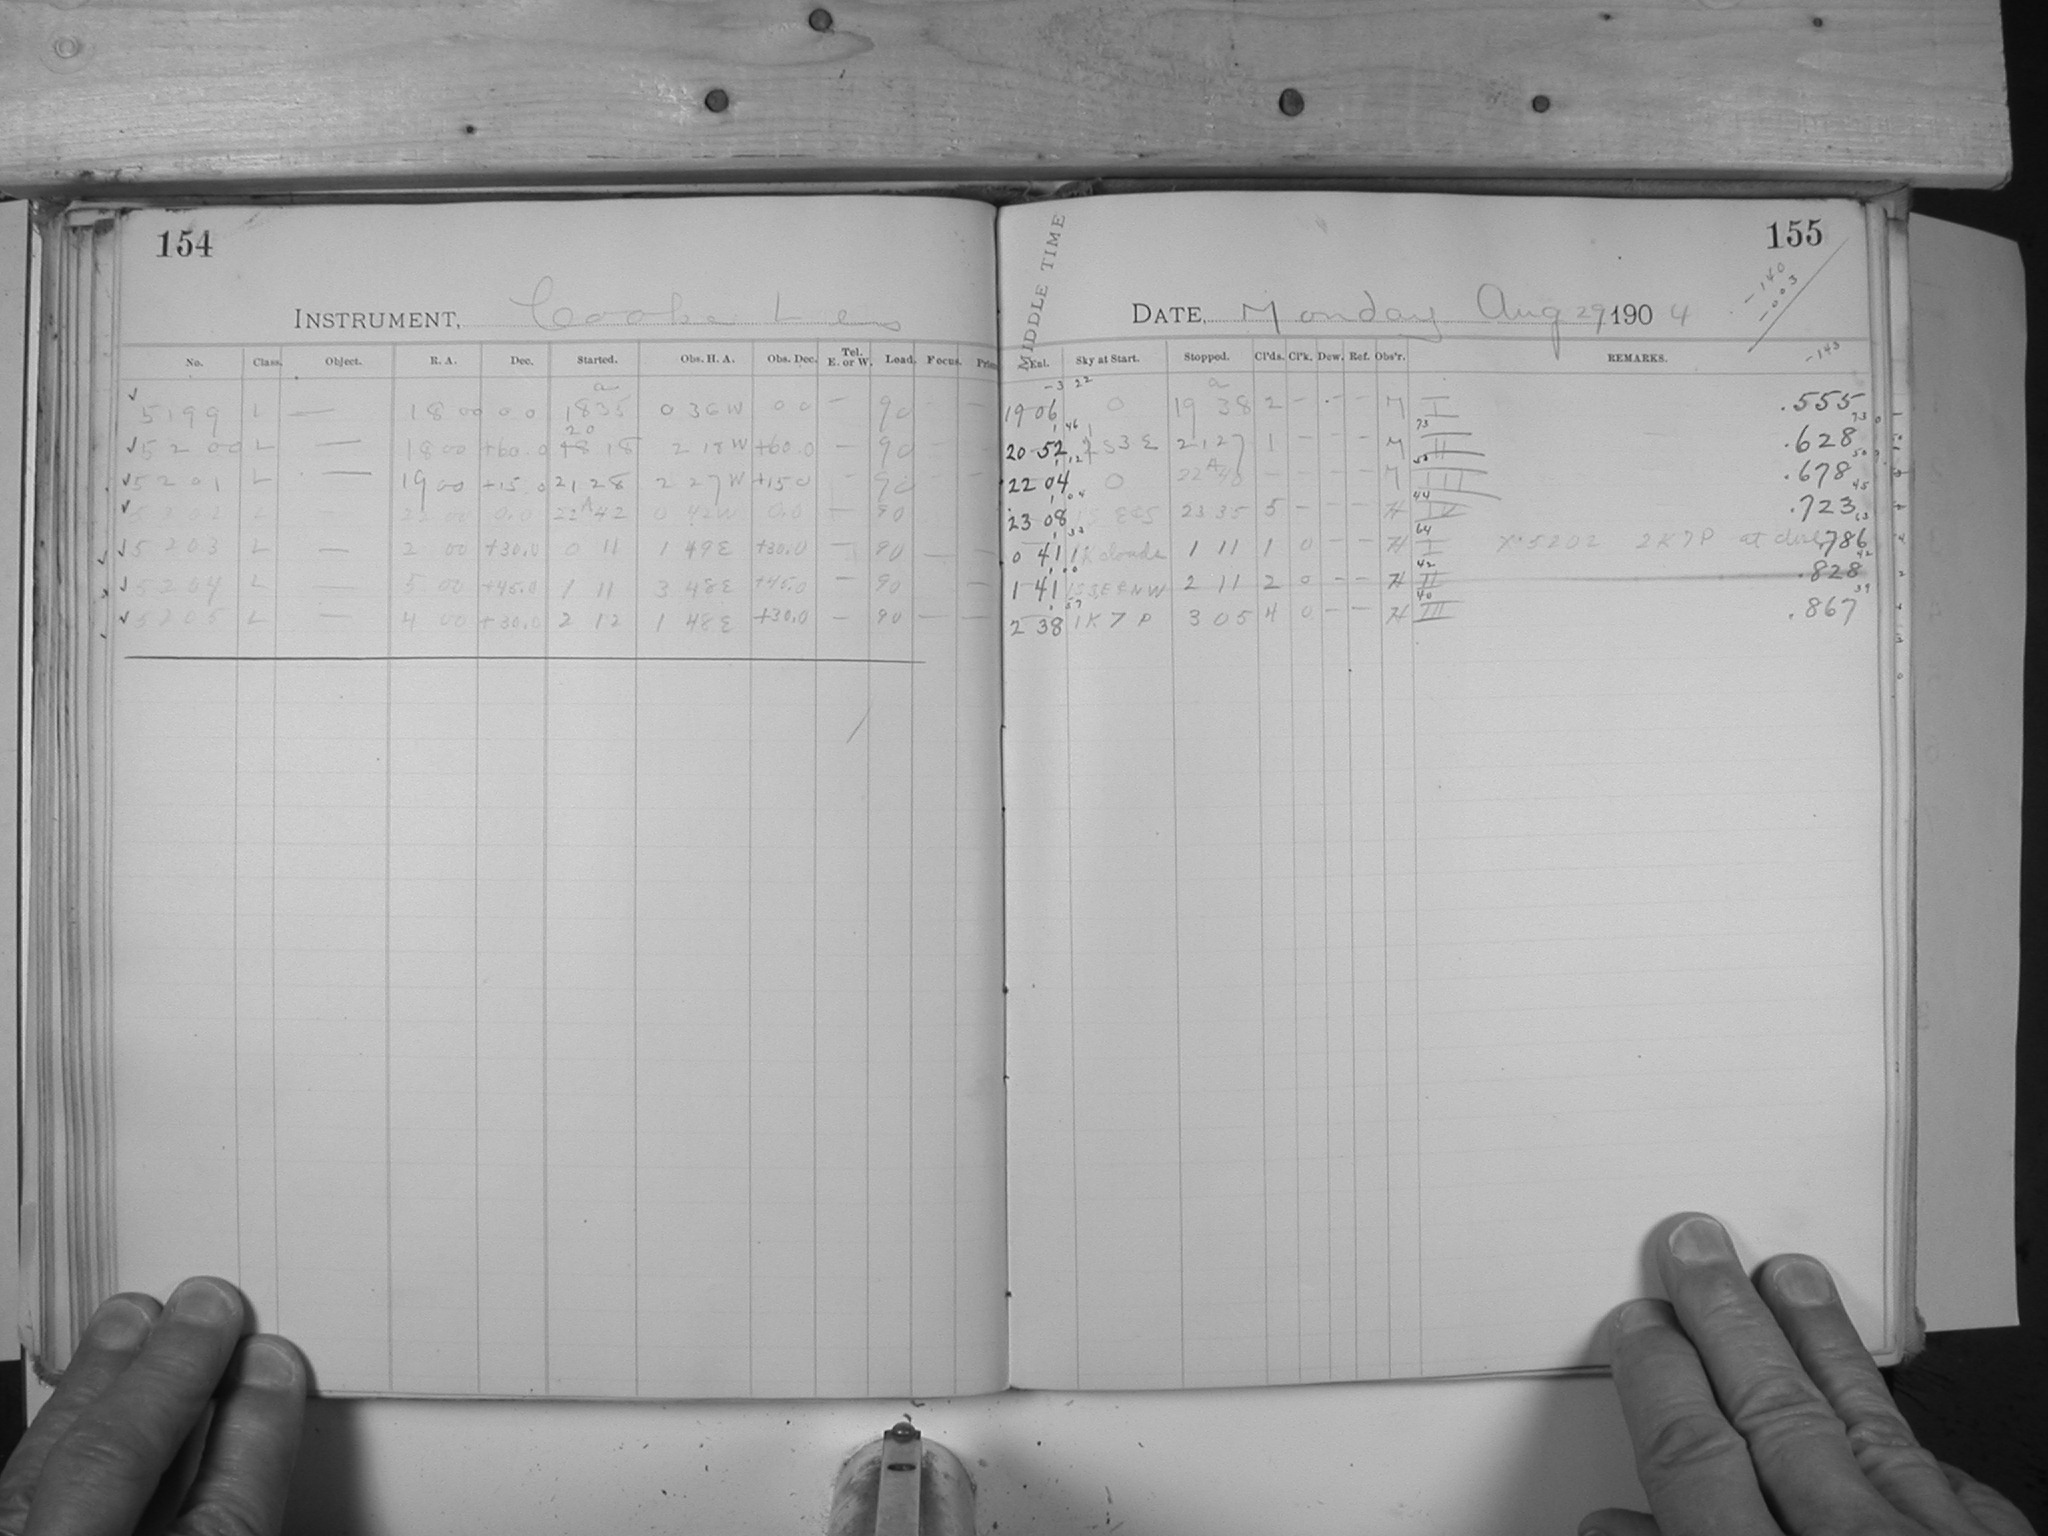 154
INSTRUMENT, Cooke Lens
No. Class. Object. R. A. Dec. Started. Obs. H. A. Obs. Dec. Tel. E. or W. Load. Focus.
a
5199 L — 18 00 0 0 18 35 0 36 W 0 0 — 90 — —
20
5200 L — 18 00 +60.0 18 18 2 18 W +60.0 — 90
5201 L — 19 00 +15.0 21 28 2 27 W +15 0 — 90 — —
5202 L — 22 00 0.0 22 A 42 0 42 W 0.0 — 90
5203 L — 2 00 +30.0 0 11 1 49 E +30.0 — 90 — —
5204 L — 5 00 +45.0 1 11 3 48 E +45.0 — 90
5205 L — 4 00 +30.0 2 12 1 48 E +30.0 — 90 — —
155
MIDDLE TIME
DATE, Monday Aug 29 1904
-140
-003
-143
Enl. Sky at Start. Stopped. Cl'ds. Cl'k. Dew. Ref. Obs'r. REMARKS.
-3 22 a
19 06 0 19 38 2 — — — M I .555
1 46 73 73
20 52 2 S 3 E 21 27 1 — — — M II .628
1 12 50 50
22 04 0 22 A 40 — — — — M III .678
1 04 44 45
23 08 23 35 5 — — — H IV .723
1 33 64 63
0 41 1K clouds 1 11 1 0 — — H I X.5202 2K7P at close .786
1 00 42 42
1 41 2 11 2 0 — — H II .828
57 40 39
2 38 1K7P 3 05 4 0 — — H III .867